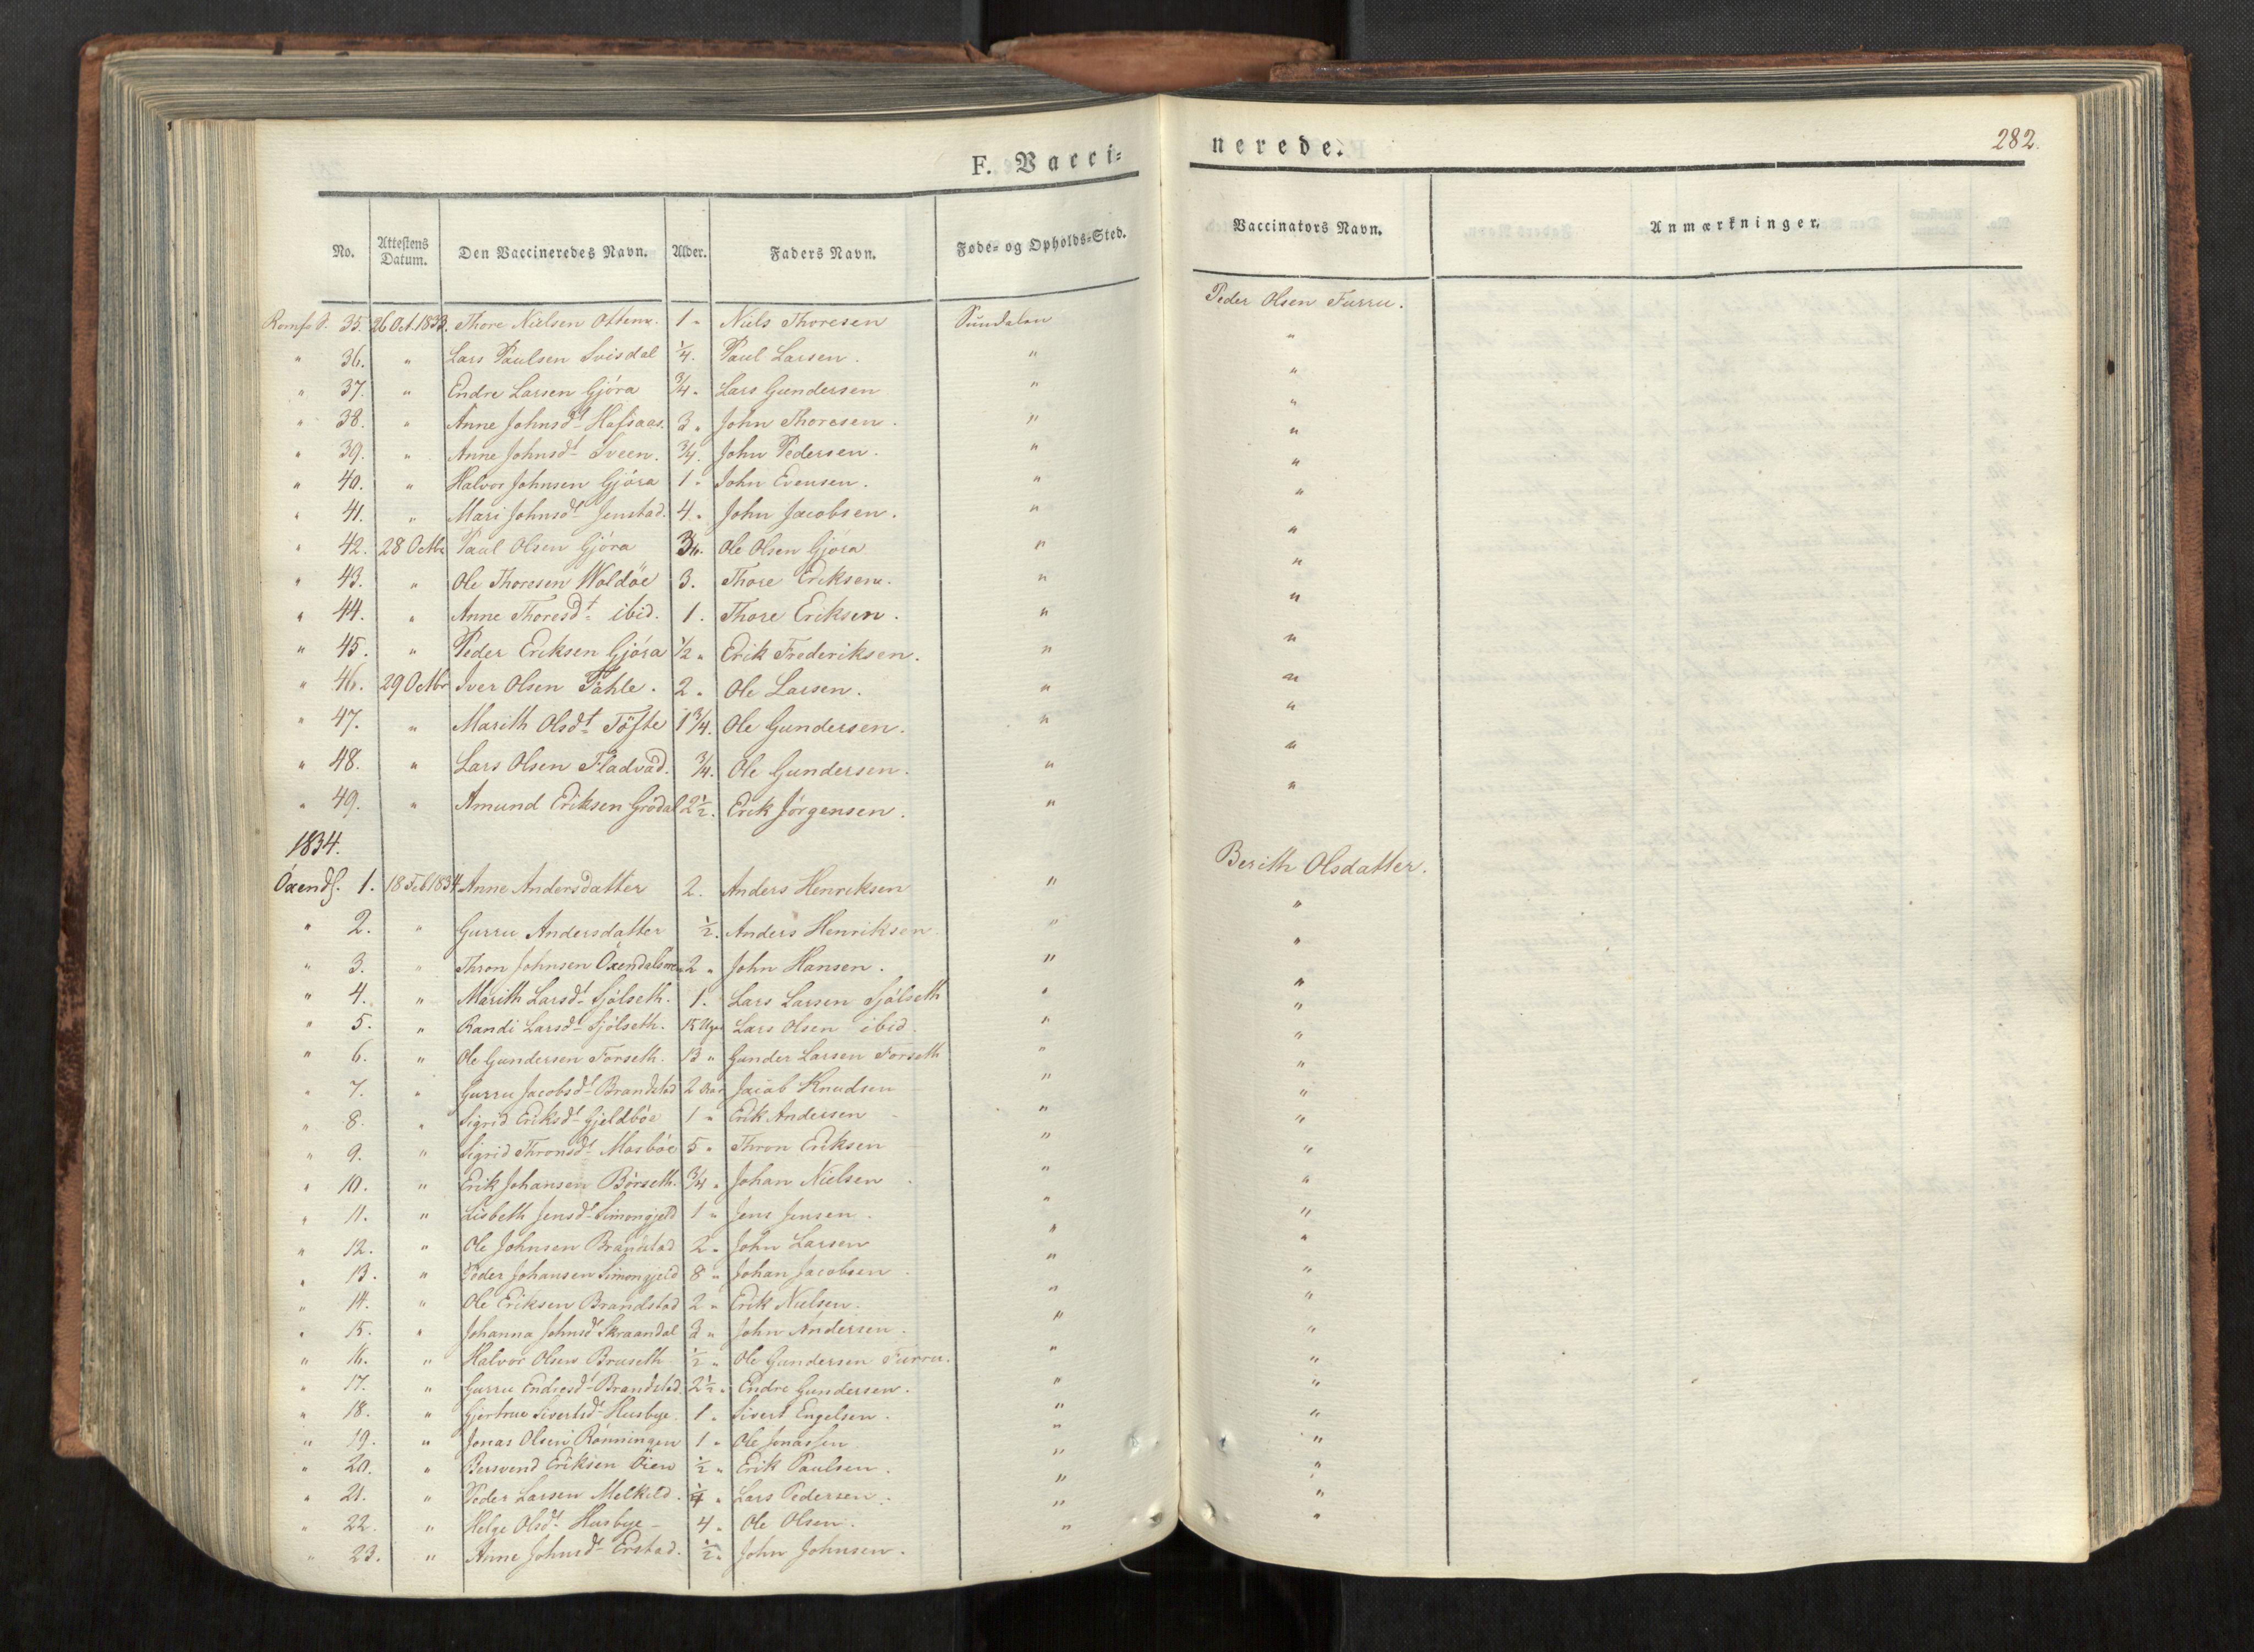 F. Vacci=
nerede.
282.
No. Attestens Datum. Den Vaccineredes Navn. Alder. Faders Navn. Føde= og Opholds=Sted. Vaccinators Navn. Anmærkninger.
35. 26 Oct. 1833. Thore Nielsen 1 " Niels Thoresen Sundalen Peder Olsen Furru.
" 36. " Lars Paulsen Svisdal 1/4. Paul Larsen. " "
" 37. " Endre Larsen Gjóra 3/4 " Lars Gundersen " "
" 38. " Anne Johnsdt Hafsaas. 3 " John Thoresen. " "
" 39. " Anne Johnsdt Sveen. 3/4. John Pedersen. " "
" 40. " Halvor Johnsen Gjóra 1 " John Evensen. " "
" 41. " Mari Johnsdt Jenstad. 4 " John Jacobsen. " "
" 42. 28 Octbr Paul Olsen Gjóra 3/4. Ole Olsen Gjóra " "
" 43. " Ole Thoresen Woldöe 3. Thore Eriksen. " "
" 44. " Anne Thoresdt ibid. 1. Thore Eriksen. " "
" 45. " Peder Eriksen Gjóra 1/2 " Erik Frederiksen. " "
" 46. 29 Octbr Iver Olsen Pahle. 2 " Ole Larsen. " "
" 47. " Marith Olsdt Töfte 1 3/4. Ole Gundersen. " "
" 48. " Lars Olsen Fladvad. 3/4. Ole Gundersen. " "
" 49. " Amund Eriksen Grödal 2 1/2. Erik Jörgensen. " "
1834.
Öxends. 1. 18 Feb 1834 Anne Andersdatter 2. Anders Henriksen " Berith Olsdatter.
" 2. " Gurru Andersdatter 1/2. Anders Henriksen " "
" 3. " Thron Johnsen 2 " John Hansen. " "
" 4. " Marith Larsdt Sjólseth. 1. Lars Larsen Sjólseth " "
" 5. " Randi Larsdt Sjólseth. 15 Uger Lars Olsen ibid. " "
" 6. " Ole Gundersen Forseth. 13 " Gunder Larsen Forseth " "
" 7. " Gurru Jacobsdt Brandstad 2 Aar Jacob Knudsen " "
" 8. " Sigrid Eriksdt Gjeldbóe 1 " Erik Andersen " "
" 9. " Sigrid Thronsdt Mosbóe 5 " Thron Eriksen " "
" 10. " Erik Johansen Börseth. 3/4 " Johan Nielsen " "
" 11. " Lisbeth Jensdt Simongjeld 1 " Jens Jensen. " "
" 12. " Ole Johnsen Brandstad 2 " John Larsen " "
" 13. " Peder Johansen Simongjeld 8 " Johan Jacobsen " "
" 14. " Ole Eriksen Brandstad 2 " Erik Nielsen. " "
" 15. " Johanna Johnsdt Skraandal 3 " John Andersen. " "
" 16. " Halvor Olsen Bruseth 1/2 " Ole Gundersen Furru. " "
" 17. " Gurru Endresdt Brandstad. 2 1/2 " Endre Gundersen. " "
" 18. " Gjertrue Sivertsdt Husbye. 1 " Sivert Engelsen. " "
" 19. " Jonas Olsen Rönningen 1 " Ole Jonassen " "
" 20. " Bersvend Eriksen Öien 1/2 " Erik Paulsen. " "
" 21. " Peder Larsen Melkild. 1/4 " Lars Pedersen. " "
" 22. " Helge Olsdt Husbye 4 " Ole Olsen. " "
" 23. " Anne Johnsdt Erstad. 1/2 " John Johnsen. "